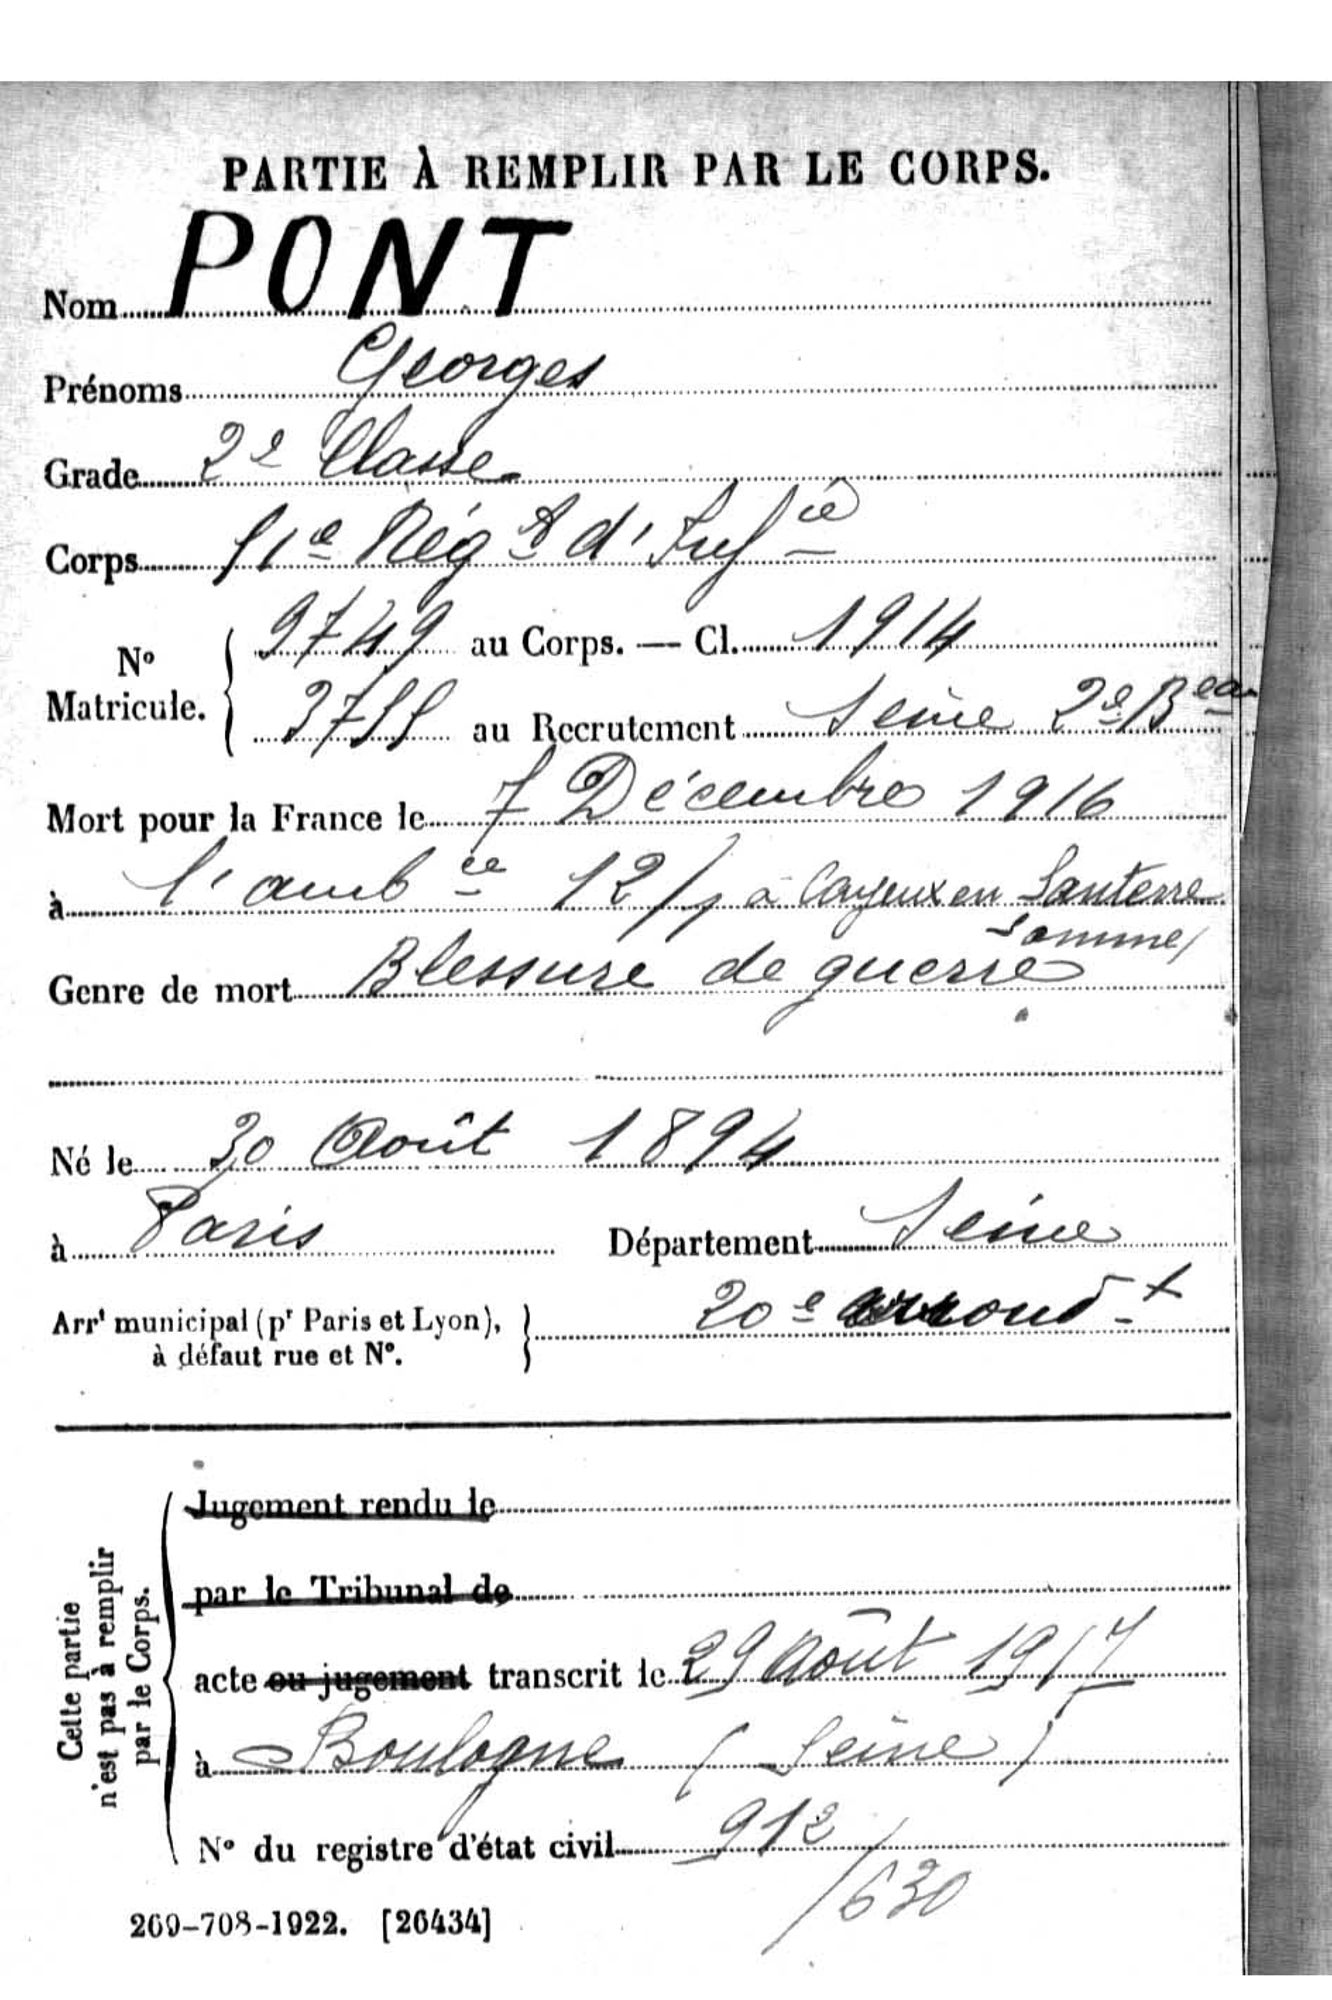 PARTIE À REMPLIR PAR LE CORPS.
Nom PONT
Prénoms Georges
Grade 2e Classe
Corps 51e Rég t d'Inf ie
No Matricule. 9749 au Corps. — Cl. 1914
3755 au Recrutement Seine 2e Beau
Mort pour la France le 7 Décembre 1916
à l'amb ce 12/1 à Cayeux en Santerre
Somme)
Genre de mort Blessure de guerre
Né le 30 Août 1894
à Paris Département Seine
Arrt municipal (pr Paris et Lyon), à défaut rue et No. 20e arrond t
Cette partie n'est pas à remplir par le Corps.
Jugement rendu le
par le Tribunal de
acte ou jugement transcrit le 29 Août 1917
à Boulogne (Seine)
No du registre d'état civil 912
/630
269-708-1922. [26434]